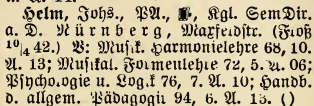 Helm, Johs., PA., Kgl. SemDir.
a. D. Nürnberg, Maxfeldstr. (Floß
10/4 42.) V: Musik. Harmonielehre 68, 10.
A. 13; Musikal. Formenlehre 72, 5. A. 06;
Psychologie u. Log. f 76, 7. A. 10; Handb.
d. allgem. Pädagogik 94, 6. A. 13. ()